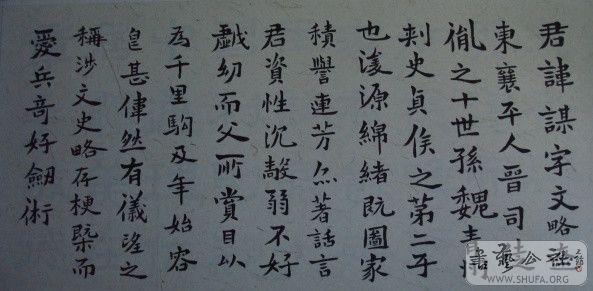 君諱謀字文略
東襄平人晉司
胤之十世孫魏青
刾史貞侯之第二子
也浚源綿緒既圖家
積譽連芳亦著話言
君資性沉毅弱不好
戲幼而父所賞目以
為千里駒及年始容
皃甚偉然有儀望之
稱涉文史略存梗槩而
愛兵奇好劒術
書藝公社
WWW.SHUFA.ORG